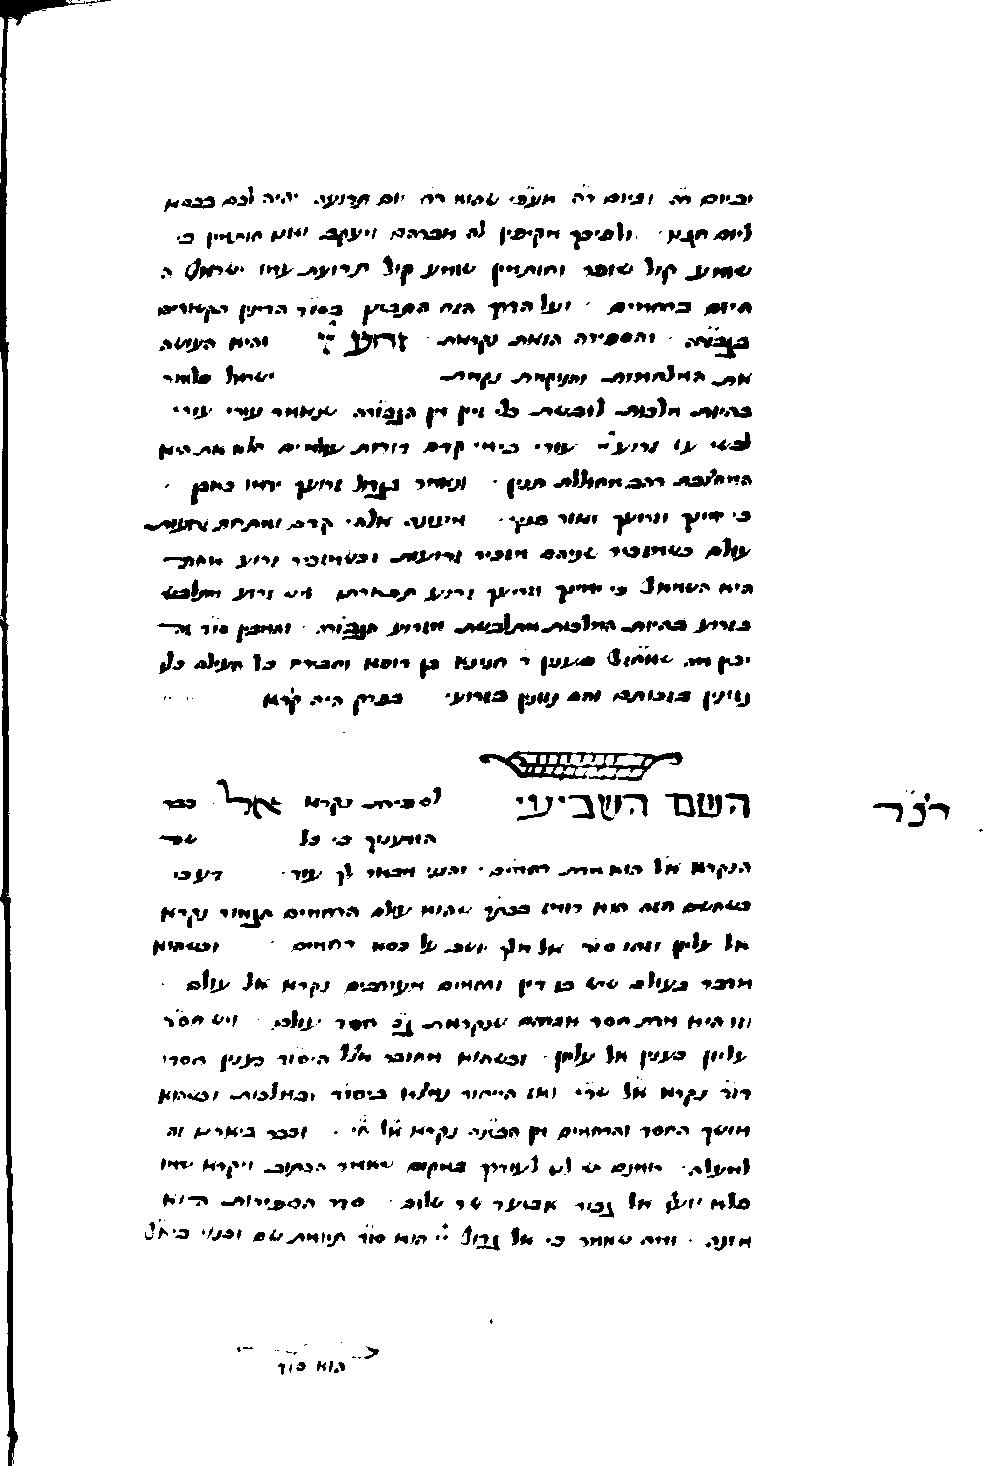 וביום רה וביום רה מעכי שהוא רה יום תרועה יהיה לכם בכסא
ליום חגנו ולפיכך מקיפין לה אברהם ויעקב ואש חותמין כי
שומע קול שופר וחותמין שומע קול תרועת עמו ישראל ה
היום ברחמים ועל הדרך הזה התבונן בסוד הדינין הקשורים
בגבורה והספירה הזאת נקראת זרוע יי והיא העושה
את המלחמות והנוקמת נקמת ישראל כלומר
בהיות מלכות לובשת כלי זיין מן הגבורה שנאמר עורי עורי
לבשי עז זרוע יי עורי כימי קדם דורות עולמים הלא את היא
המחצבת רהב מחוללת תנין ונאמר בגדל זרועך ידמו כאבן
כי ימינך וזרועך ואור פניך מעונה אלהי קדם ומתחת זרועות
עולם כשמזכיר שניהם מזכיר זרועות וכשמזכיר זרוע אחת
היא השמאל כי ימינך וזרועך זרוע תפארתו ויש זרוע מתלבש
בזרוע בהיות המלכות מתלבשת מזרוע הגבורה ותתבונן סוד זה
יכון מה שאמזל בענין ר חנינא בן דוסא והבורא כל העולם כלו
נזונין בזכותם והם נזונין בזרועי בפרק היה קורא
השם השביעי לספירות נקרא אל כבר
הודענוך כי כל שם
הנקרא אל הוא מדת רחמים והנני מבאר לך עוד דע כי
כשהשם הזה הוא רוכז בכתר שהוא עולם הרחמים הגמור נקרא
אל עליון וזהו סוד אל מלך יושב על כסא רחמים וכשהוא
מדבר בעולם שיש בו דין ורחמים מעורבים נקרא אל עולם
וזו היא מדת חסד אברהם שנקראת גם חסד עולם ויש חסד
עליון כענין אל עליון וכשהוא מחובר אצל היסוד כענין חסדי
דוד נקרא אל שדי ואז הייחוד נעלה ביסוד ובמלכות וכשהוא
מושך החסד והרחמים מן הבינה נקרא אל חי וכבר ביארנו זה
למעלה ואמנם יש לנו לעוררך במקום שאמר הכתוב ויקרא שמו
פלא יועץ אל גבור אביעד שר שלום סדר הספירות הוא
מונה ומה שאמר כי אל גדול יי הוא סוד תיומת שם וכנוי כי אל
הוא סוד